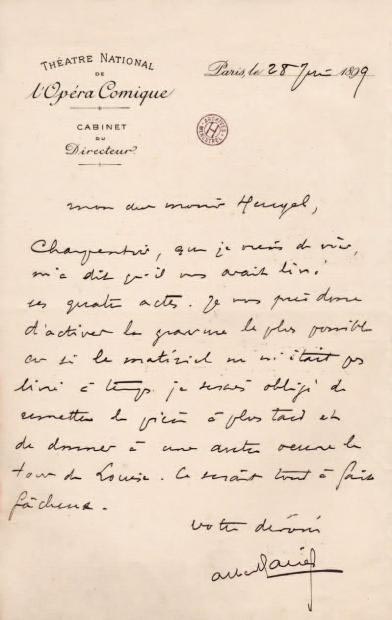 THÉATRE NATIONAL
DE
l'Opéra Comique
CABINET
DU
Directeur
Paris, le 28 Juin 1899
mon cher monsieur Heugel,
Charpentier, que je viens de voir,
m'a dit qu'il vous avait livré
ses quatre actes. Je vous prie donc
d'activer la gravure le plus possible
car si le matériel ne m'était pas
livré à temps je serais obligé de
remettre la pièce à plus tard et
de donner à une autre oeuvre le
tour de Louise. Ce serait tout à fait
fâcheux.
votre dévoué
Albert Carré